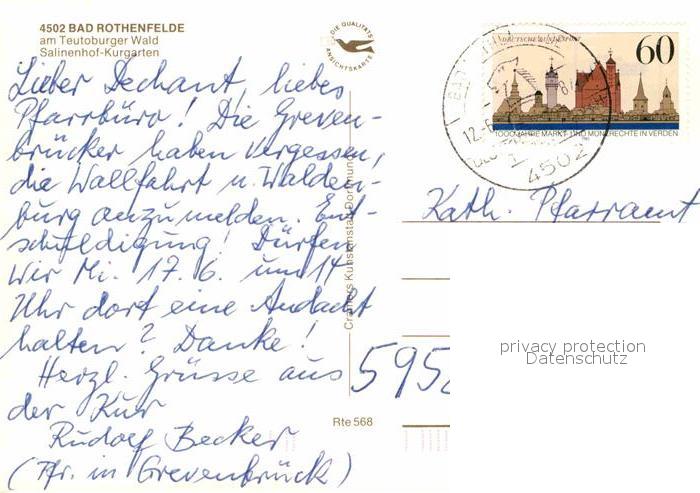 4502 BAD ROTHENFELDE
am Teutoburger Wald
Salinenhof-Kurgarten
Lieber Dechant, liebes
Pfarrbüro! Die Greven-
brücker haben vergessen,
die Wallfahrt n. Walden-
burg anzumelden. Ent-
schuldigung! Dürfen
wir Mi. 17.6. um 14
Uhr dort eine Andacht
halten? Danke!
Herzl. Grüsse aus
der Kur
Rudolf Becker
(Pfr. in Grevenbrück)
DIE QUALITÄTS
ANSICHTSKARTE
Cramers Kunstanstalt Dortmund
Rte 568
60
1000 JAHRE MARKT- UND MÜNZRECHTE IN VERDEN
4502
Kath. Pfarramt
595
privacy protection
Datenschutz